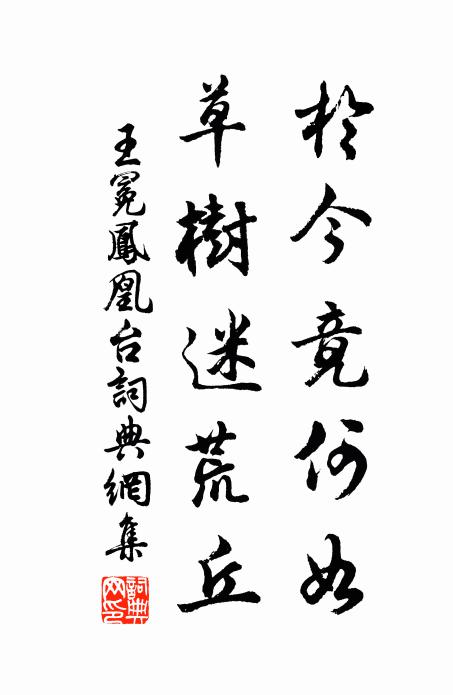 於今竟何如
草樹迷荒丘
王冕鳳凰台詞典網集
詞典網印